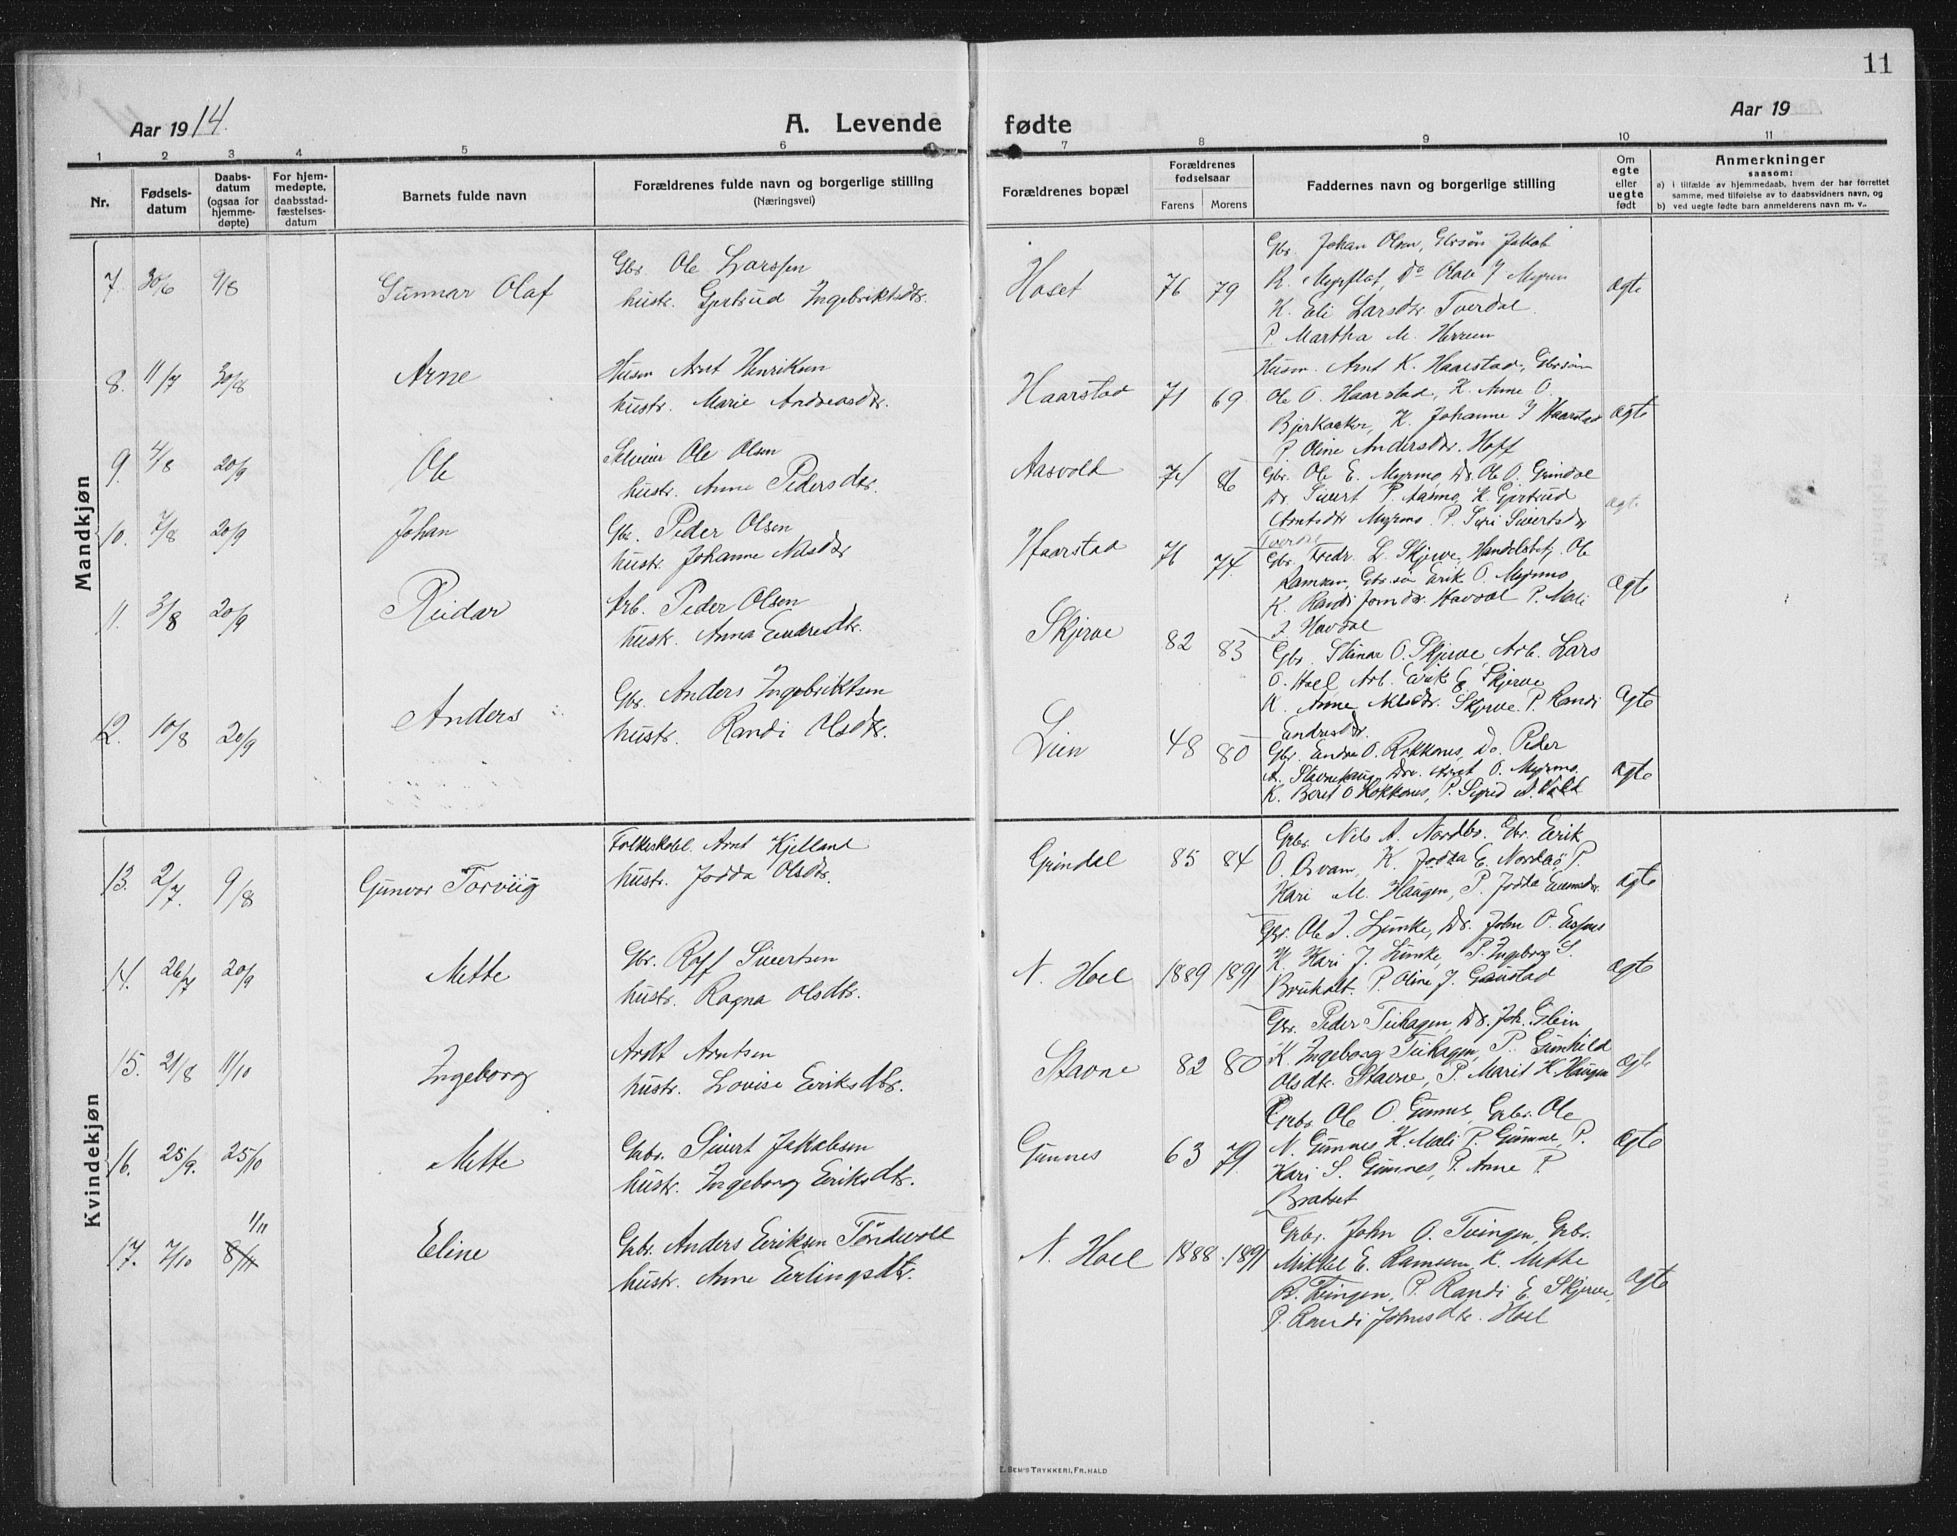 11
Aar 1914.
A. Levende fødte
Aar 19
1 2 3 4 5 6 7 8 9 10 11
Nr.
Fødsels-
datum
Daabs-
datum
(ogsaa for
hjemme-
døpte)
For hjem-
medøpte,
daabsstad-
fæstelses-
datum
Barnets fulde navn
Forældrenes fulde navn og borgerlige stilling
(Næringsvei)
Forældrenes bopæl
Forældrenes
fødselsaar
Farens Morens
Faddernes navn og borgerlige stilling
Om
egte
eller
uegte
født
Anmerkninger
saasom:
a) i tilfælde av hjemmedaab, hvem der har forrettet
samme, med tilføielse av to daabsvidners navn, og
b) ved uegte fødte barn anmelderens navn m. v..
Mandkjøn
7 30/6 9/8 Gunnar Olaf
Gbr. Ole Larssen
hustr. Gjertrud Ingebriktsdtr.
Hoset 76 79
Gbr. Johan Olsen, Gbrsøn Jakob
R. Myrflot, Do Olav J Myren
K. Eli Larsdtr. Tverdal
P. Martha M. Herrem
ægte
8. 11/7 30/8 Arne
Husm Arnt Henriksen
hustr. Marie Andreasdtr.
Haarstad 71 69
Husm. Arnt K. Haarstad, Gbrsøn
Ole O. Haarstad, K. Anne O.
Bjerkaaker, K. Johanne J Haarstad
P. Oline Andersdtr. Hoff
ægte
9. 4/8 20/9 Ole
Ole Olsen
hustr. Anne Pedersdtr.
Aasvold 74 86
Gbr. Ole E. Myrmo, Do. Ole O. Grindal
Do. Sivert P. Aasmo, K. Gjertrud
Arntsdtr Myrmo. P. Siri Sivertsdtr
ægte
10. 7/8 20/9 Johan
Gbr. Peder Olsen
hustr. Johanne Nilsdtr
Haarstad 71 74.
Gbr. Fredr. L. Skjerve, Handelsbetj. Ole
Ramsem, Gbr.søn Erik O. Myrmo
K. Randi Havdal P. Mali
J. Havdal
ægte
11. 3/8 20/9 Reidar
Arb. Peder Olsen
hustr. Anna Endresdtr.
Skjerve 82 83
Gbr. Steinar O. Skjerve, Arb. Lars
O. Hoel, Arb. Erik E. Skjerve
K. Anne Nilsdtr. Skjerve. P. Randi
Endresdtr.
ægte
12. 10/8 20/9 Anders
Gbr. Anders Ingebriktsen
hustr. Randi Olsdtr.
Lien 48 80
Gbr. Endre O. Rokkones, Do. Peder
A. Stavnehaug, Do. Arnt O. Myrmo,
K. Beret O Rokkones, P. Sigrid A.
ægte
Kvindekjøn
13. 2/7. 9/8 Gunvor Torviig
Folkeskol. Arnt Kjelland
hustr. Jodda Olsdtr.
Grindal 85 84
Gbr. Nils A. Nordbø. Gbr. Eirik
O. Osvam, K. Jodda E. Nordbø P.
Kari M. Haugen, P. Jodda
ægte
14. 26/7 20/9 Mette
Gbr. Rolf Sivertsen
hustr. Ragna Olsdtr.
N. Hoel 1889 1891
Gbr. Ole J. Lunke, Do. John O. Espes
K. Kari J. Lunke, P. Ingeborg S.
P. Oline J. Gaustad
ægte
15. 21/8 11/10 Ingeborg
Arntsen
hustr. Lovise Eiriksdtr.
Stavne 82 80
Gbr. Peder Teihagen, Do. Joh.
K Ingeborg Teihagen, P. Gunhild
Olsdtr. Stavne, P. Marit K. Haugen
ægte
16. 25/9. 25/10 Mette
Gbr. Sivert Jakobsen
hustr. Ingeborg Eiriksdtr.
Gunnes 63 79
Gbr. Ole O. Gunnes, Gbr. Ole
N. Gunnes K. Mali P. Gunnes, P.
Kari S. Gunnes, P. Anne P.
Bratset
ægte
17. 7/10 8/11 1/11 Eline
Gbr. Anders Eiriksen Tøndevold
hustr. Anne Erlingsdtr.
N. Hoel 1888 1891
Gbr. John O. Tvingen, Gbr.
Mikkel E. Ramsem K. Mette
B. Tvingen, P. Randi E. Skjerve,
P. Randi Johnsdtr. Hoel
ægte
E. SEM'S TRYKKERI, FR.HALD